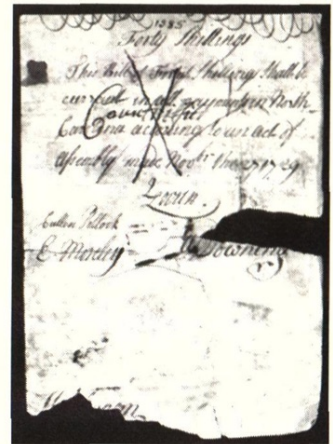 1285
Forty Shillings
This Bill of Forty Shillings Shall be
current in all payments in North
Counterfit
Carolina according to an act of
Assembly made Novbr the 27 1729
Cullen Pollock
E. Moseley W Downing